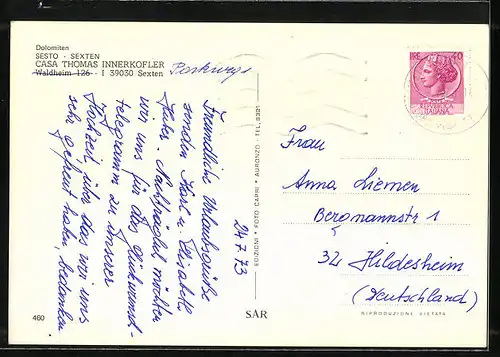 Dolomiten
SESTO - SEXTEN
CASA THOMAS INNERKOFLER
Waldheim 126 - I 39030 Sexten
Parkweg 1
24.7.73
Freundliche Urlaubsgrüße
senden Karl + Elisabeth
Huke. Nachträglich möchten
wir uns für das Glückwunsch-
telegramm zu unserer
Hochzeit über das wir uns
sehr gefreut haben, bedanken
EDIZIONI • FOTO CAPRI • AURONZO - TEL. 9321
LIRE 40
REPUBBLICA
ITALIANA
Frau
Anna Liemen
Bergmannstr 1
32 Hildesheim
(Deutschland)
460
SAR
RIPRODUZIONE VIETATA